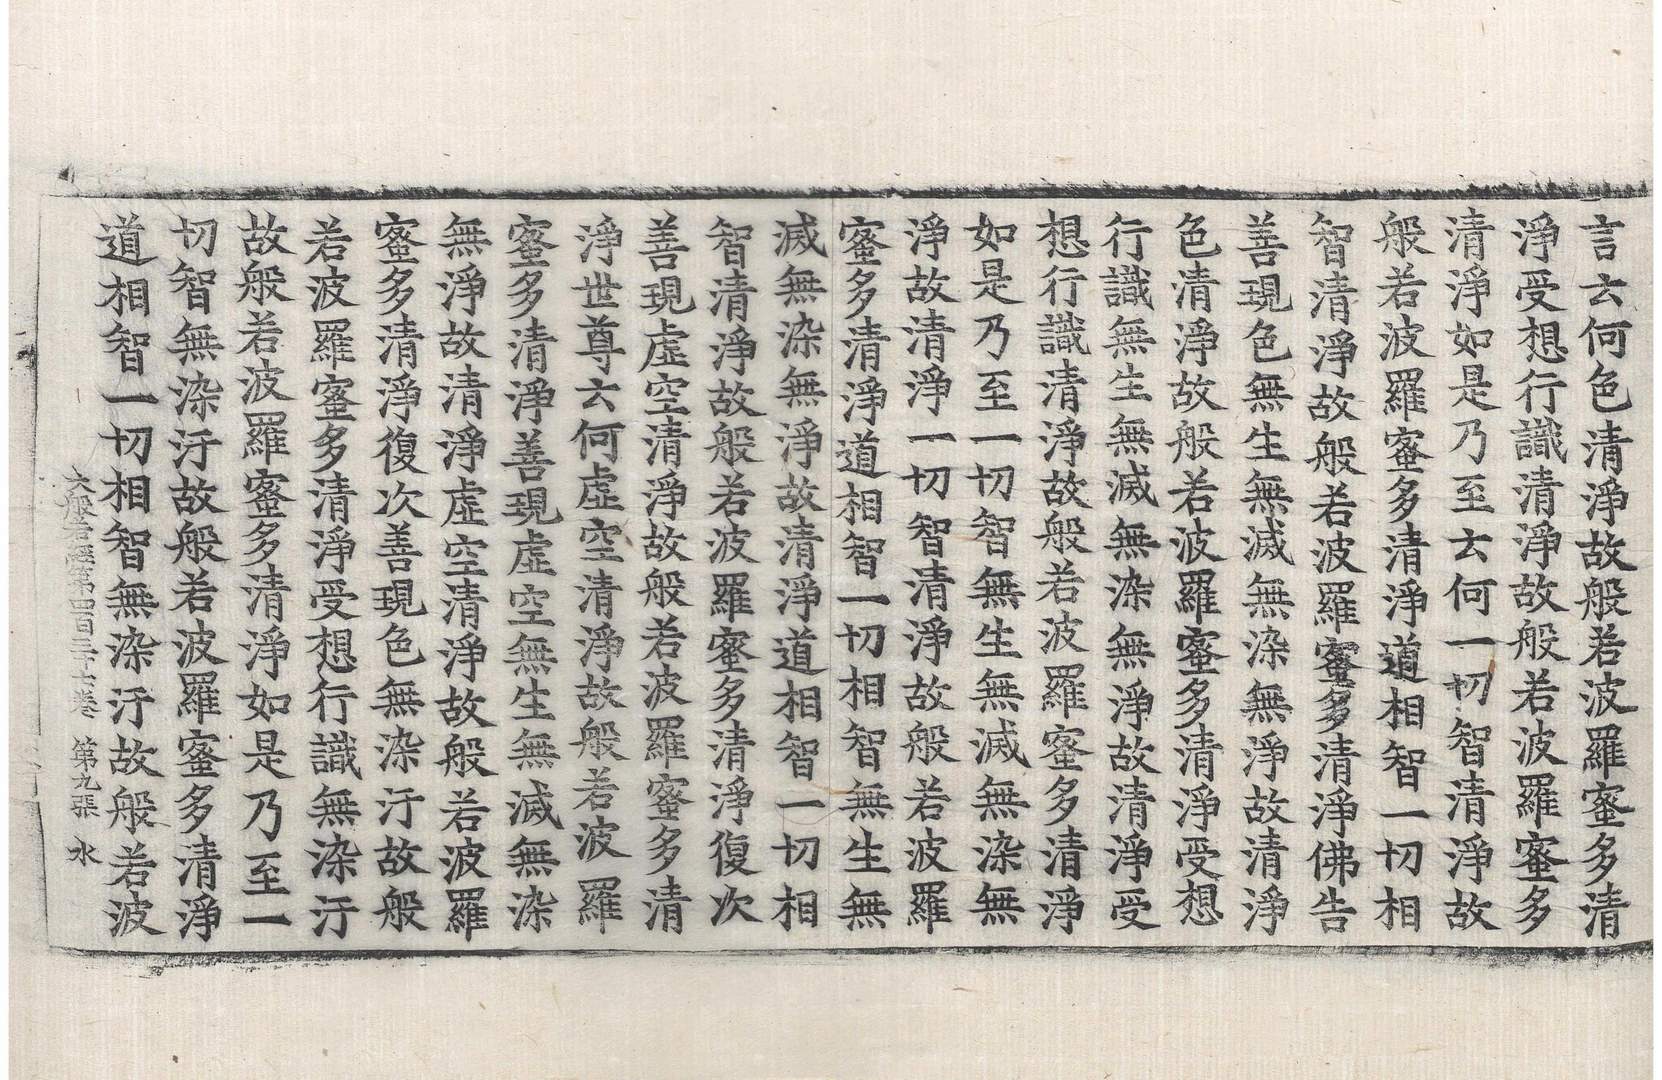 言云何色清淨故般若波羅蜜多清
淨受想行識清淨故般若波羅蜜多
清淨如是乃至云何一切智清淨故
般若波羅蜜多清淨道相智一切相
智清淨故般若波羅蜜多清淨佛告
善現色無生無滅無染無淨故清淨
色清淨故般若波羅蜜多清淨受想
行識無生無滅無染無淨故清淨受
想行識清淨故般若波羅蜜多清淨
如是乃至一切智無生無滅無染無
淨故清淨一切智清淨故般若波羅
蜜多清淨道相智一切相智無生無
滅無染無淨故清淨道相智一切相
智清淨故般若波羅蜜多清淨復次
善現虛空清淨故般若波羅蜜多清
淨世尊云何虛空清淨故般若波羅
蜜多清淨善現虛空無生無滅無染
無淨故清淨虛空清淨故般若波羅
蜜多清淨復次善現色無染汙故般
若波羅蜜多清淨受想行識無染汙
故般若波羅蜜多清淨如是乃至一
切智無染汙故般若波羅蜜多清淨
道相智一切相智無染汙故般若波
大般若經第四百三十六卷 第九張 水